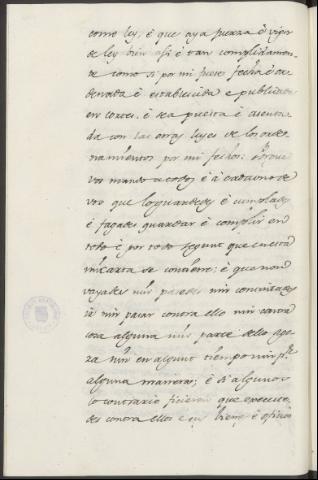 como ley, é que aya fuerza é vigor
de ley bien asi é tan complidamen-
te como si por mi fuese fecha é or
denada é establecida é publicada
en cortes, é sea puesta é asenta-
da con las otras leyes de los orde
namientos por mi fechos: porque
vos mando a todos é á cada uno de
vos que lo guardedes é cumplades
é fagades guardar é complir en
todo é por todo segunt que en esta
mi carta se contiene; é que non
vayades nin pasedes nin consintades
ir nin pasar contra ello nin contra
cosa alguna nin parte dello ago-
ra nin en algunt tiempo nin por
alguna manera; é si alguno
lo contrario ficieren que executé-
des contra ellos é sus bienes é oficios